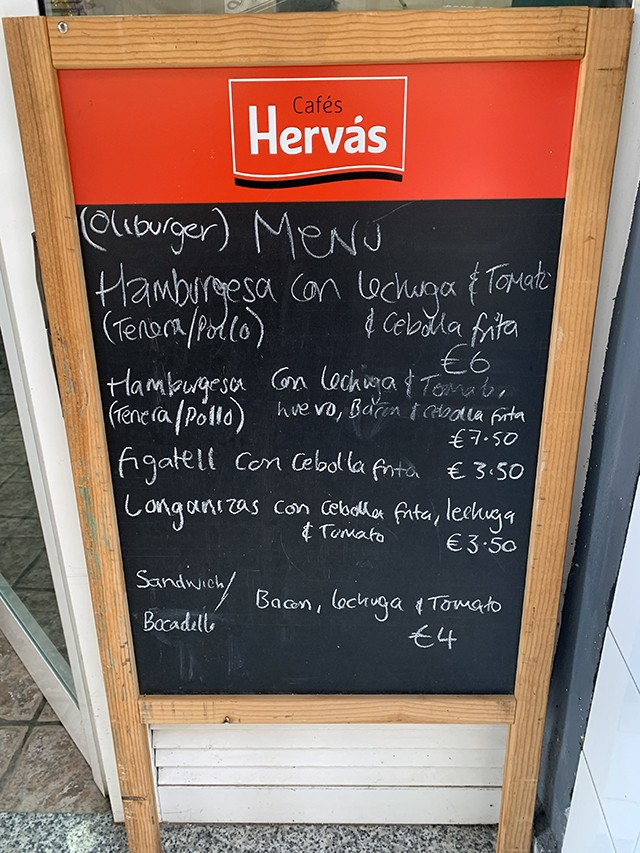 Cafés
Hervás
(Oliburger) Menu
Hamburgesa con lechuga & Tomate
(Tenera/Pollo) & Cebolla frita
€6
Hamburgesa con lechuga & Tomate,
(Tenera/Pollo) huevo, Bacon & cebolla frita
€7.50
figatell con Cebolla frita €3.50
Longanizas con cebolla frita, lechuga
& Tomato €3.50
Sandwich/
Bacon, lechuga & Tomato
Bocadillo
€4